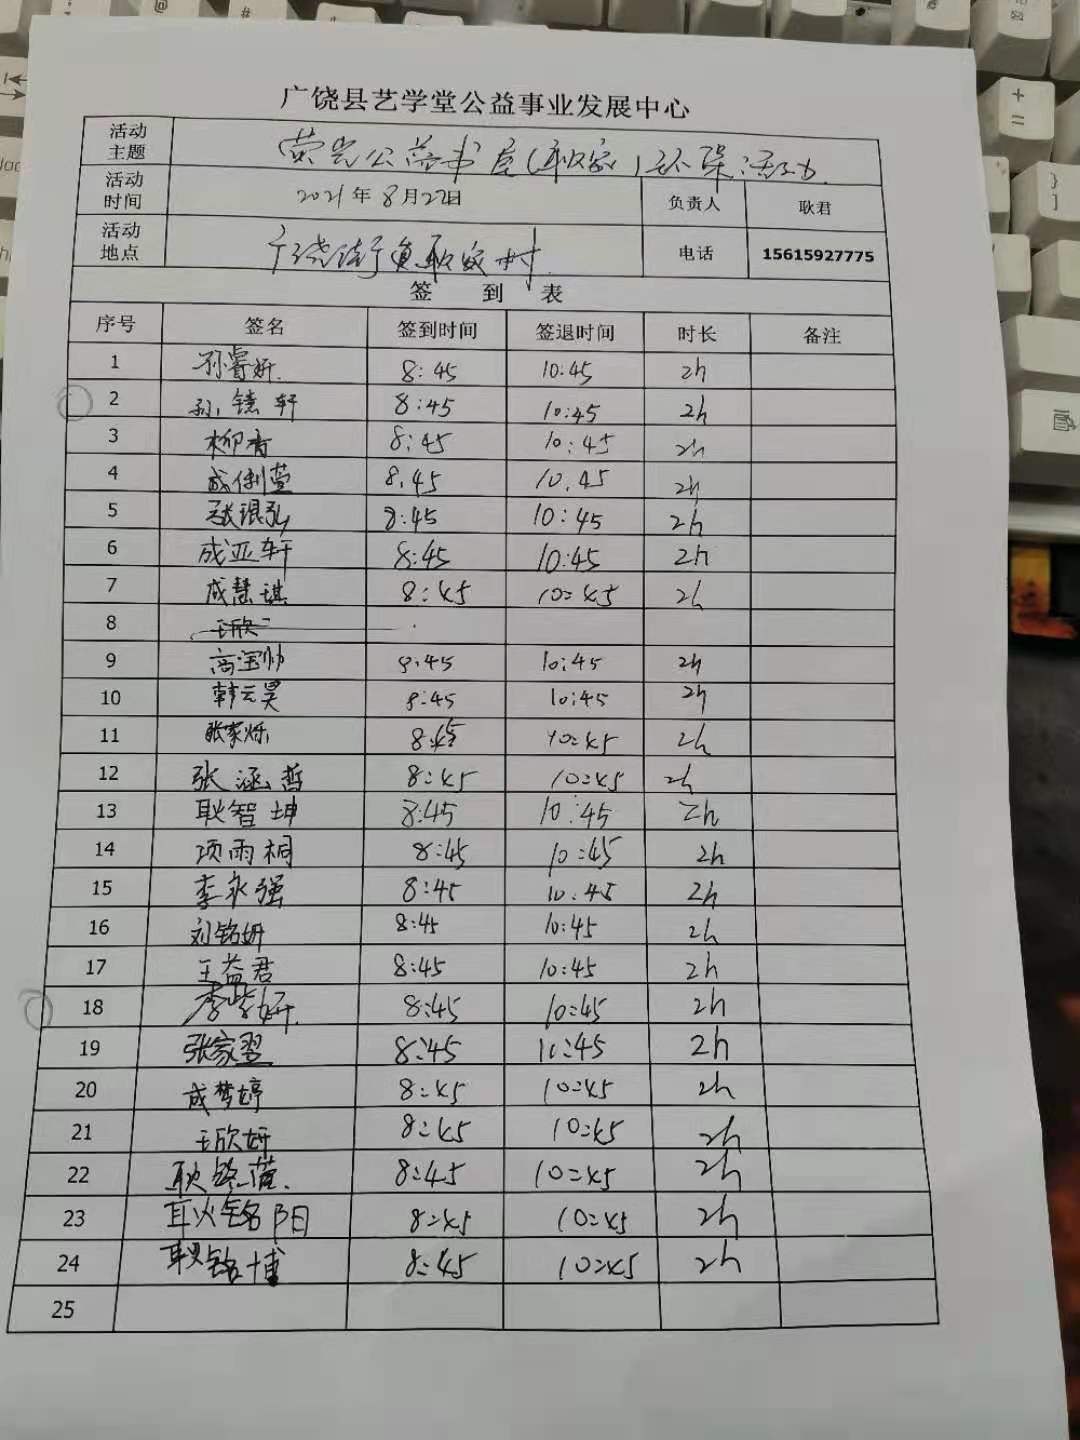 广饶县艺学堂公益事业发展中心
活动主题 荧光公益书屋(耿家)环保活动.
活动时间 2021年8月22日 负责人 耿君
活动地点 广饶街道耿家村. 电话 15615927775
签 到 表
序号 签名 签到时间 签退时间 时长 备注
1 孙睿妍. 8:45 10:45 2h
2 孙镱轩 8:45 10:45 2h
3 柳青 8:45 10:45 2h
4 成俐萱 8:45 10:45 2h
5 张琅弘 8:45 10:45 2h
6 成亚轩 8:45 10:45 2h
7 成慧琪 8:45 10:45 2h
8 王欣
9 高宝帅 8:45 10:45 2h
10 韩云昊 8:45 10:45 2h
11 张家烁 8:45 10:45 2h
12 张涵哲 8:45 10:45 2h
13 耿智坤 8:45 10:45 2h
14 项雨桐 8:45 10:45 2h
15 李永强 8:45 10:45 2h
16 刘铭妍 8:45 10:45 2h
17 王益君 8:45 10:45 2h
18 李紫妍. 8:45 10:45 2h
19 张家翌 8:45 10:45 2h
20 成梦婷 8:45 10:45 2h
21 王欣妍 8:45 10:45 2h
22 耿铭萱. 8:45 10:45 2h
23 耿铭阳 8:45 10:45 2h
24 耿铭博 8:45 10:45 2h
25